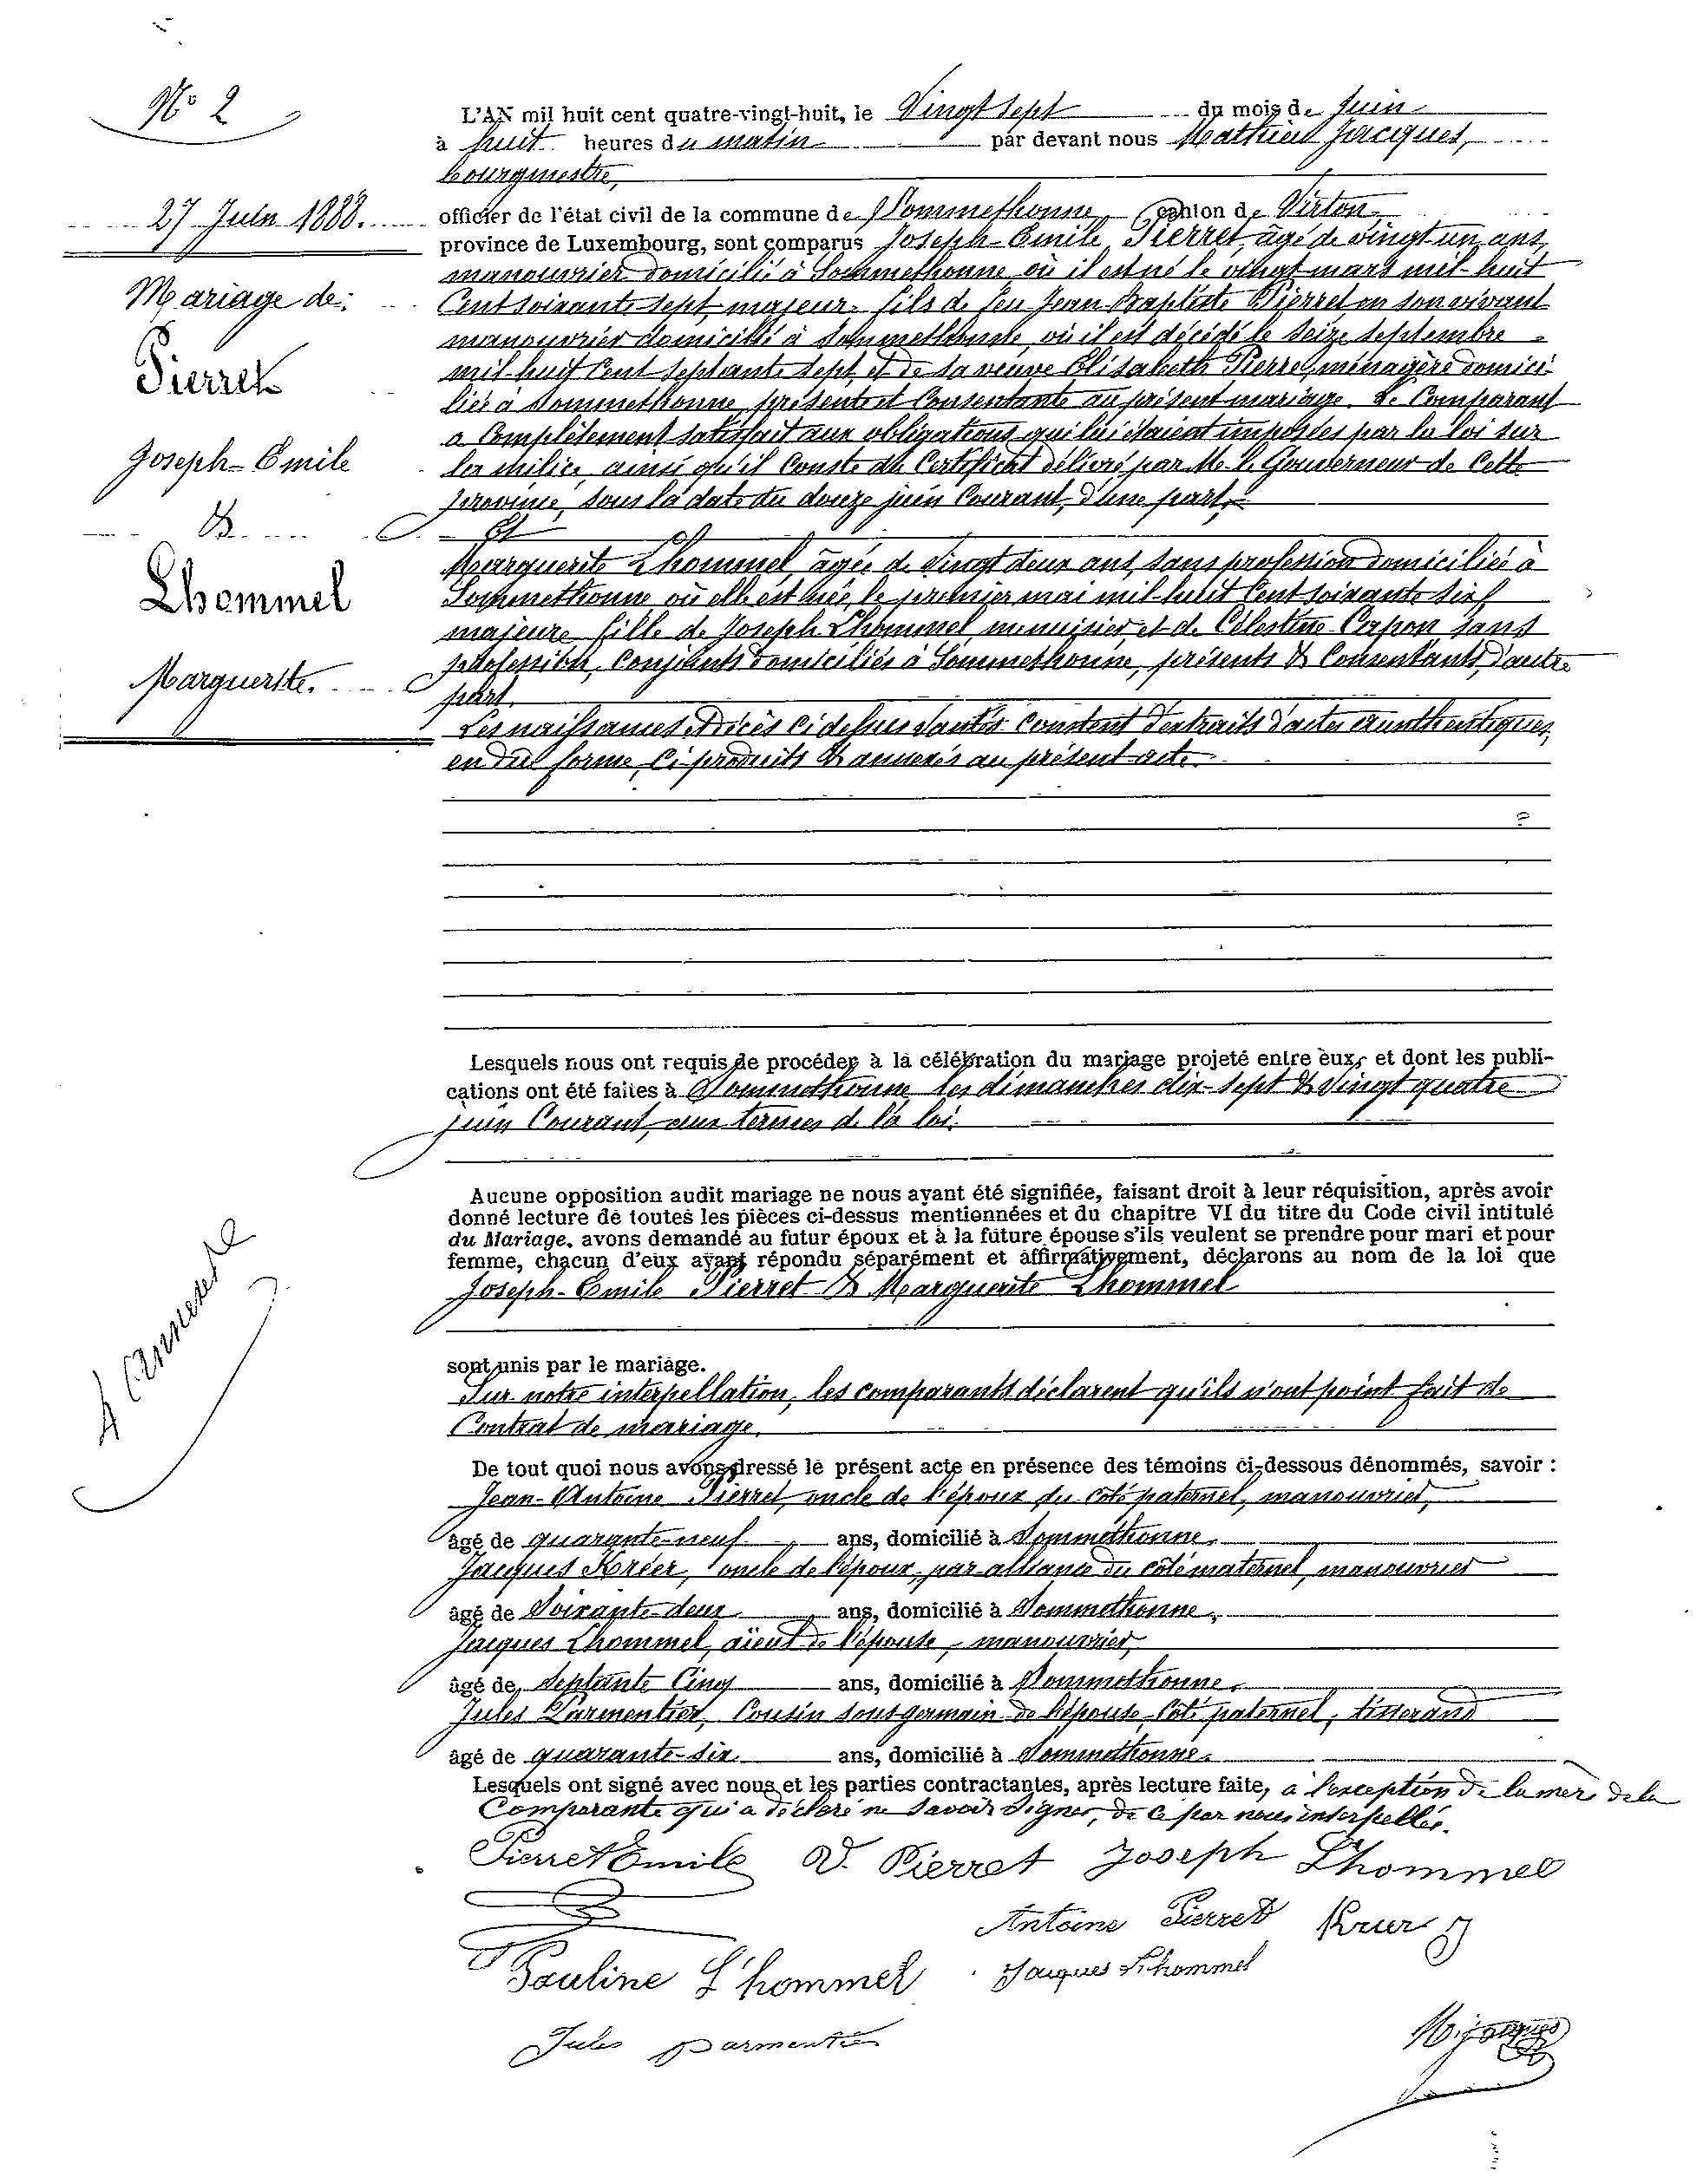 N° 2
27 Juin 1888.
Mariage de:
Pierret
Joseph-Emile
&
Lhommel
Marguerite.
4 annexes
L'AN mil huit cent quatre-vingt-huit, le Vingt sept du mois de Juin
à huit heures du matin par devant nous Mathieu Jacques,
bourgmestre,
officier de l'état civil de la commune de Sommethonne, canton de Virton,
province de Luxembourg, sont comparus Joseph-Emile Pierret, âgé de vingt un ans,
manouvrier domicilié à Sommethonne où il est né le vingt mars mil-huit
Cent soixante sept, majeur, fils de feu Jean-Baptiste Pierret en son vivant
manouvrier domicilié à Sommethonne, où il est décédé le seize septembre
mil-huit Cent septante sept, et de sa veuve Elisabeth Pierre, ménagère domici-
liée à Sommethonne, présente et Consentante au présent mariage. Le Comparant
a Complètement satisfait aux obligations qui lui étaient imposées par la loi sur
la milice, ainsi qu'il Conste du Certificat délivré par Mr. le Gouverneur de Cette
province, sous la date du douze juin Courant, d'une part,
Et
Marguerite Lhommel, âgée de Vingt deux ans, sans profession domiciliée à
Sommethonne où elle est née, le premier mai mil-huit Cent soixante six,
majeure, fille de Joseph Lhommel menuisier, et de Célestine Capon sans
profession, Conjoints domiciliés à Sommethonne, présents & Consentants, d'autre
part.
Les naissances & décès ci dessus constent d'extraits d'actes authentiques,
en due forme, Ci-produits & annexés au présent acte.
Lesquels nous ont requis de procéder à la célébration du mariage projeté entre eux, et dont les publi-
cations ont été faites à Sommethonne les dimanches dix-sept & Vingt quatre
juin Courant, aux termes de la loi.
Aucune opposition audit mariage ne nous ayant été signifiée, faisant droit à leur réquisition, après avoir
donné lecture de toutes les pièces ci-dessus mentionnées et du chapitre VI du titre du Code civil intitulé
du Mariage, avons demandé au futur époux et à la future épouse s'ils veulent se prendre pour mari et pour
femme, chacun d'eux ayant répondu séparément et affirmativement, déclarons au nom de la loi que
Joseph-Emile Pierret & Marguerite Lhommel
sont unis par le mariage.
Sur notre interpellation, les comparants déclarent qu'ils n'ont point fait de
Contrat de mariage.
De tout quoi nous avons dressé le présent acte en présence des témoins ci-dessous dénommés, savoir :
Jean-Antoine Pierret, oncle de l'époux du coté paternel, manouvrier,
âgé de quarante-neuf ans, domicilié à Sommethonne,
Jacques Kréer, oncle de l'époux, par alliance du côté maternel, manouvrier
âgé de Soixante-deux ans, domicilié à Sommethonne,
Jacques Lhommel, aïeul de l'épouse, manouvrier,
âgé de Septante Cinq ans, domicilié à Sommethonne,
Jules Parmentier, Cousin sous germain de l'épouse, Côté paternel, tisserand
âgé de quarante-six ans, domicilié à Sommethonne.
Lesquels ont signé avec nous et les parties contractantes, après lecture faite, à l'exception de la mère de la
Comparante qui a déclaré ne savoir signer, de ce par nous interpellée.
Pierret Emile V. Pierret Joseph Lhommel
Antoine Pierret Kruer J
Pauline L'hommel Jacques Lhommel
Jules parmentier
M. jacques